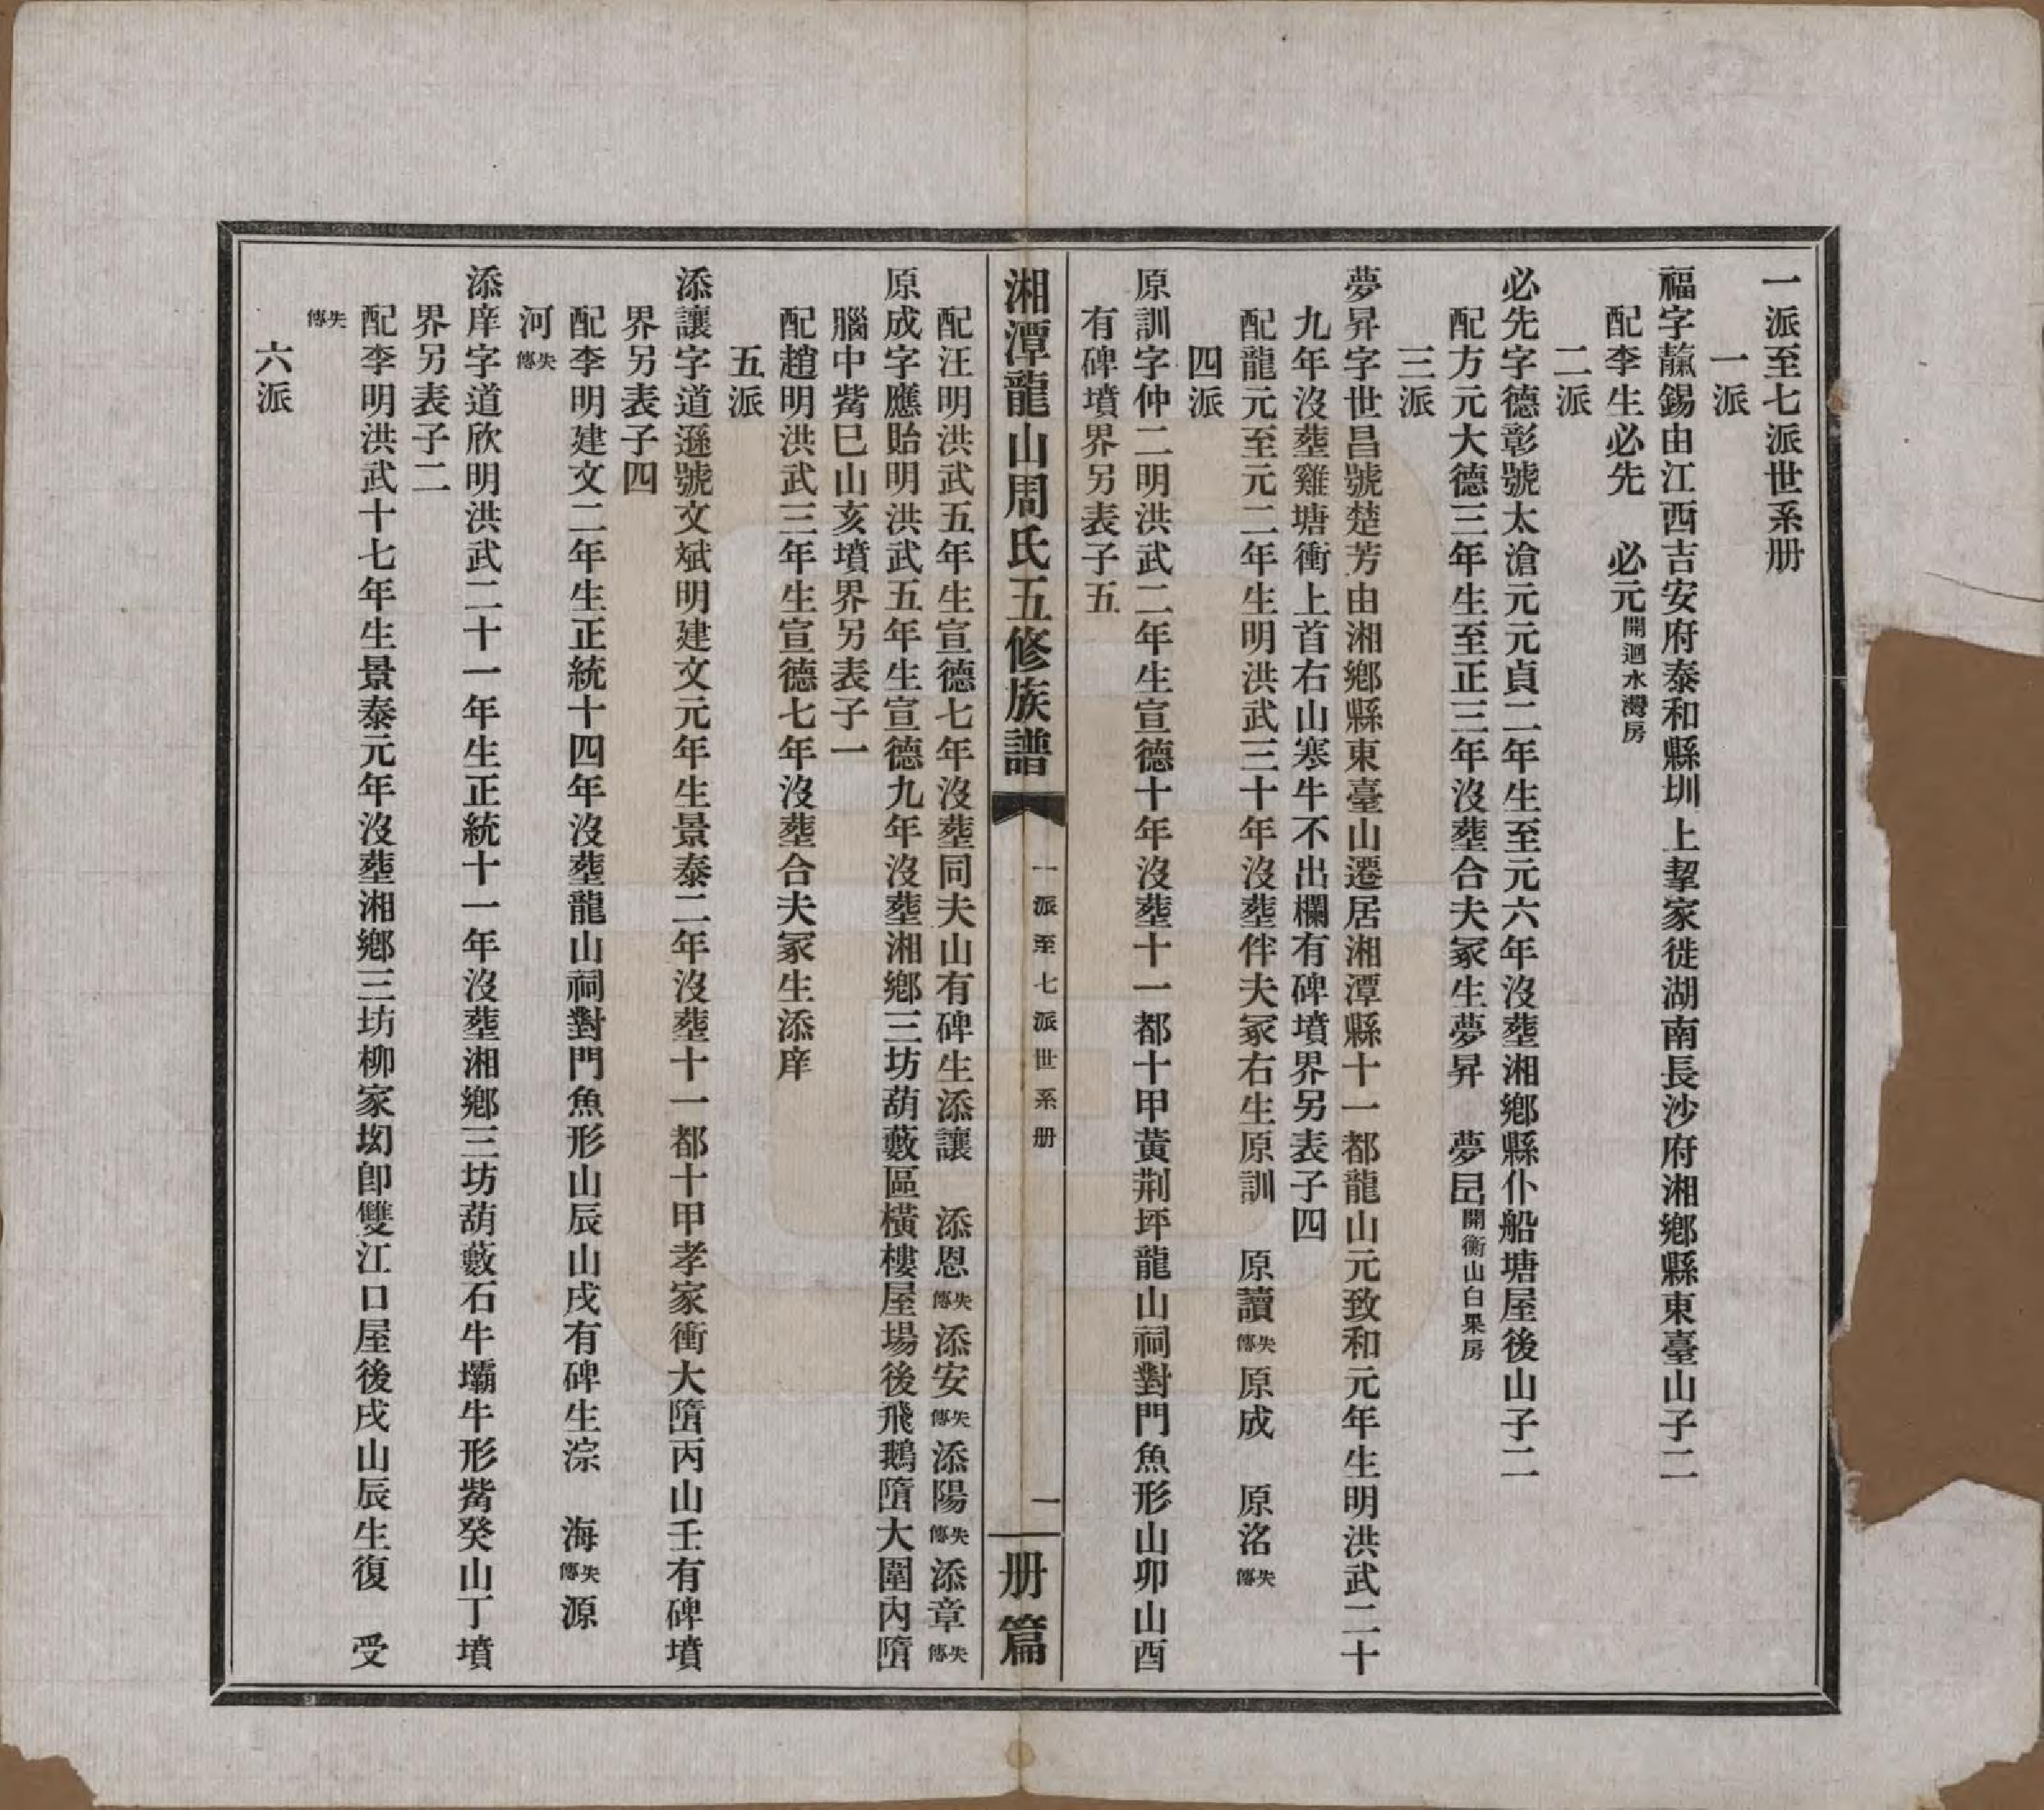 一派至七派世系册
一派
福字薰錫由江西吉安府泰和縣圳上挈家徙湖南長沙府湘鄉縣東臺山子二
配李生必先　必元開迴水灣房
二派
必先字德彰號太滄元元貞二年生至元六年沒葬湘鄉縣仆船塘屋後山子二
配方元大德三年生至正三年沒葬合夫冢生夢昇　夢昌開衡山白果房
三派
夢昇字世昌號楚芳由湘鄉縣東臺山遷居湘潭縣十一都龍山元致和元年生明洪武二十
九年沒葬雞塘衝上首右山寒牛不出欄有碑墳界另表子四
配龍元至元二年生明洪武三十年沒葬伴夫冢右生原訓　原讀失傳原成　原洺失傳
四派
原訓字仲二明洪武二年生宣德十年沒葬十一都十甲黃荆坪龍山祠對門魚形山卯山酉
有碑墳界另表子五
湘潭龍山周氏五修族譜
一派至七派世系册
一
册篇
配汪明洪武五年生宣德七年沒葬同夫山有碑生添讓　添恩失傳添安失傳添陽失傳添章失傳
原成字應貽明洪武五年生宣德九年沒葬湘鄉三坊葫藪區橫樓屋場後飛鵝墮大圍內墮
腦中觜巳山亥墳界另表子一
配趙明洪武三年生宣德七年沒葬合夫冢生添庠
五派
添讓字道遜號文斌明建文元年生景泰二年沒葬十一都十甲孝家衝大墮丙山壬有碑墳
界另表子四
配李明建文二年生正統十四年沒葬龍山祠對門魚形山辰山戌有碑生淙　海失傳源
河失傳
添庠字道欣明洪武二十一年生正統十一年沒葬湘鄉三坊葫藪石牛壩牛形觜癸山丁墳
界另表子二
配李明洪武十七年生景泰元年沒葬湘鄉三坊柳家㘭卽雙江口屋後戌山辰生復　受
失傳
六派